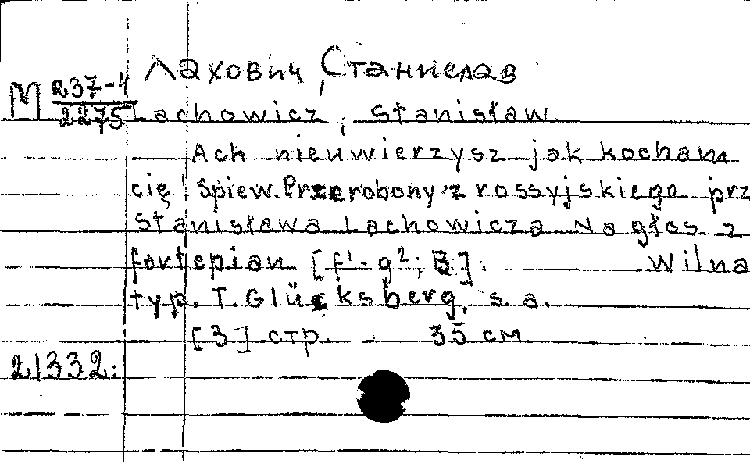 Лахович, Станислав
М 237-4
2275
Lachowicz, Stanisław
Ach nieuwierzysz jak kocham
cię! Śpiew. Przerobony z rossyjskiego prz
Stanisława Lachowicza Na głos z
fortepian [f¹-g²; B]. Wilna
typ. T. Glücksberg, s. a.
[3] стр. 35 см
21332: